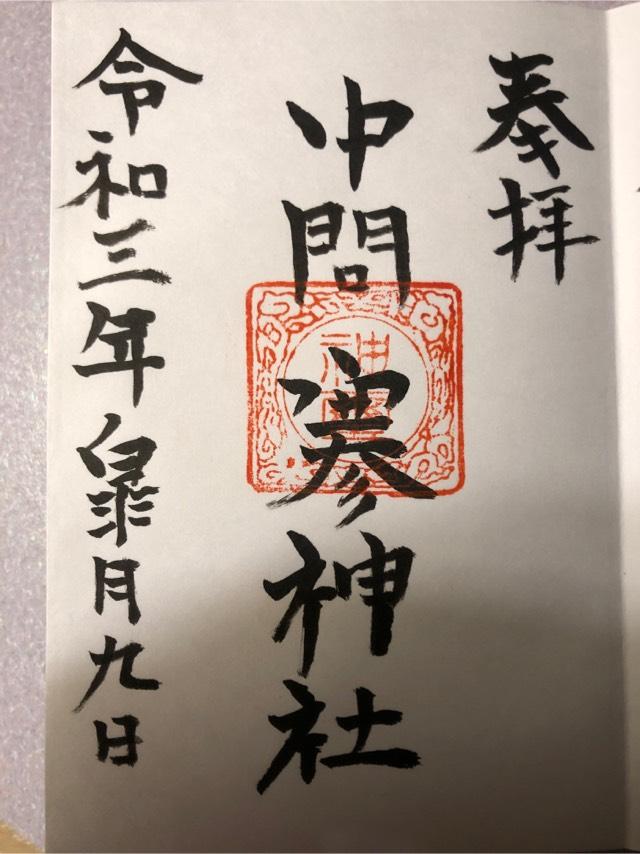 奉拝
中問寒神社
令和三年皐月九日